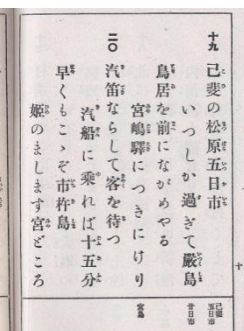 十九
己斐の松原五日市
いつしか過ぎて嚴島
鳥居を前にながめやる
宮嶋驛につきにけり
二〇
汽笛ならして客を待つ
汽船に乘れば十五分
早くもこゝぞ市杵島
姬のまします宮どころ
己斐
五日市
廿日市
宮島
十